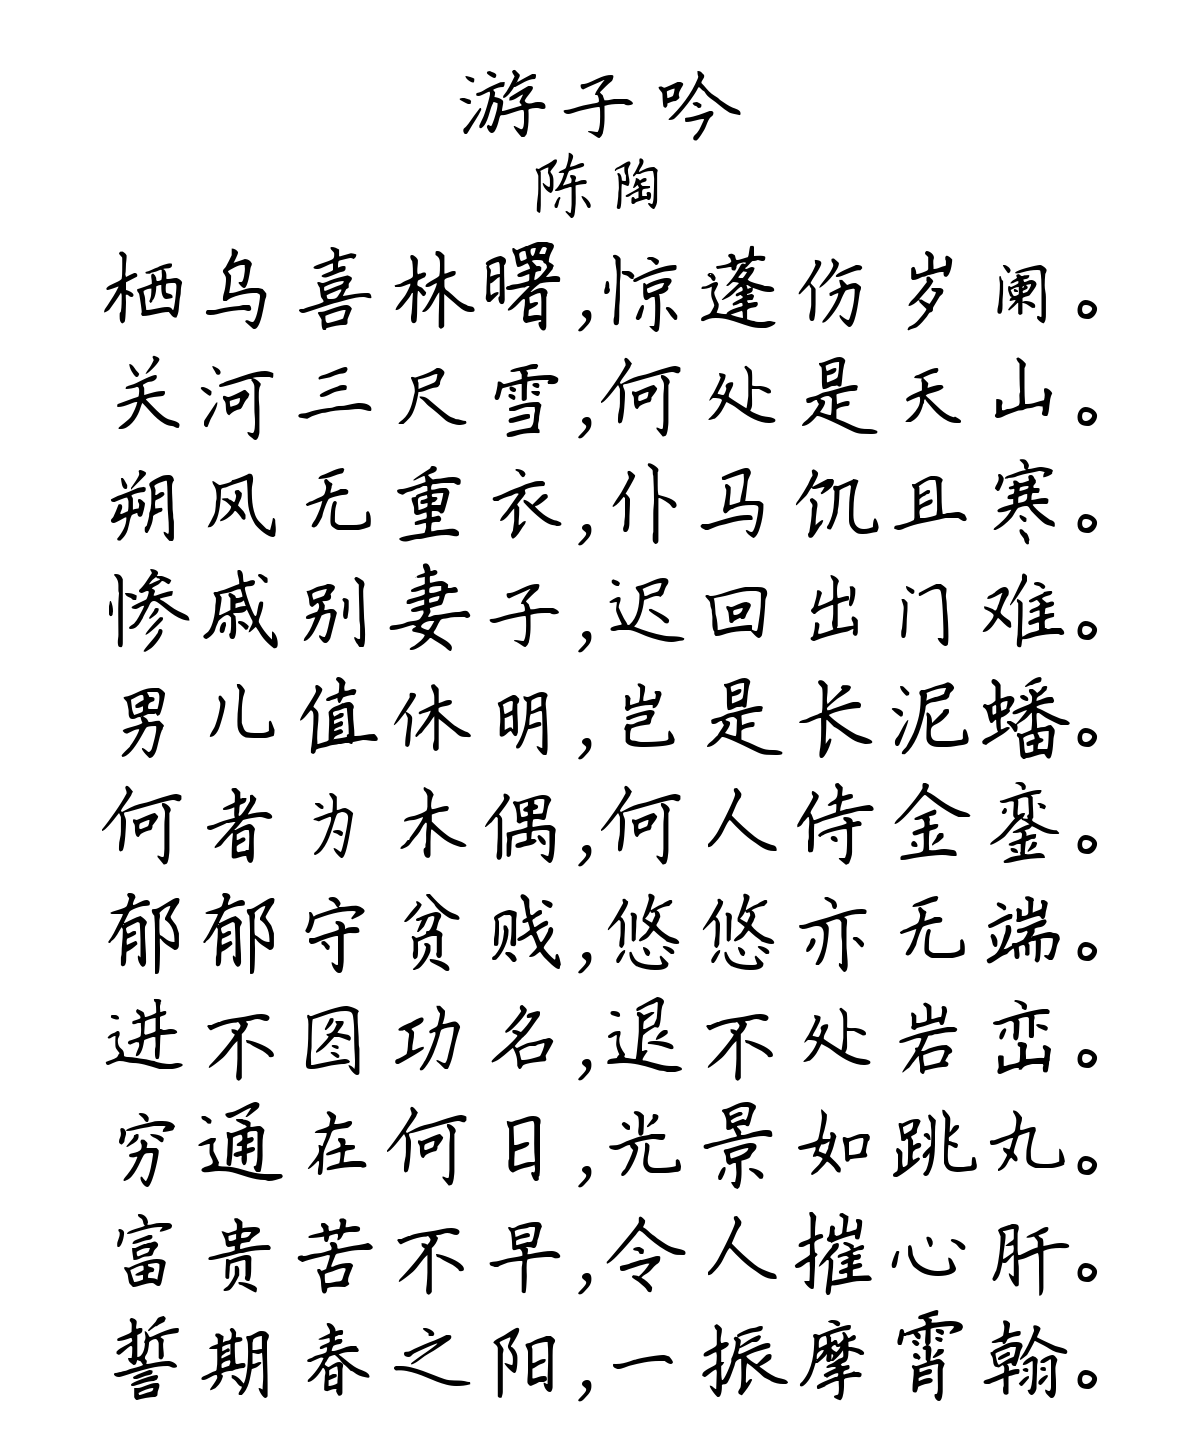 游子吟
陈陶
栖乌喜林曙,惊蓬伤岁阑。
关河三尺雪,何处是天山。
朔风无重衣,仆马饥且寒。
惨戚别妻子,迟回出门难。
男儿值休明,岂是长泥蟠。
何者为木偶,何人侍金銮。
郁郁守贫贱,悠悠亦无端。
进不图功名,退不处岩峦。
穷通在何日,光景如跳丸。
富贵苦不早,令人摧心肝。
誓期春之阳,一振摩霄翰。